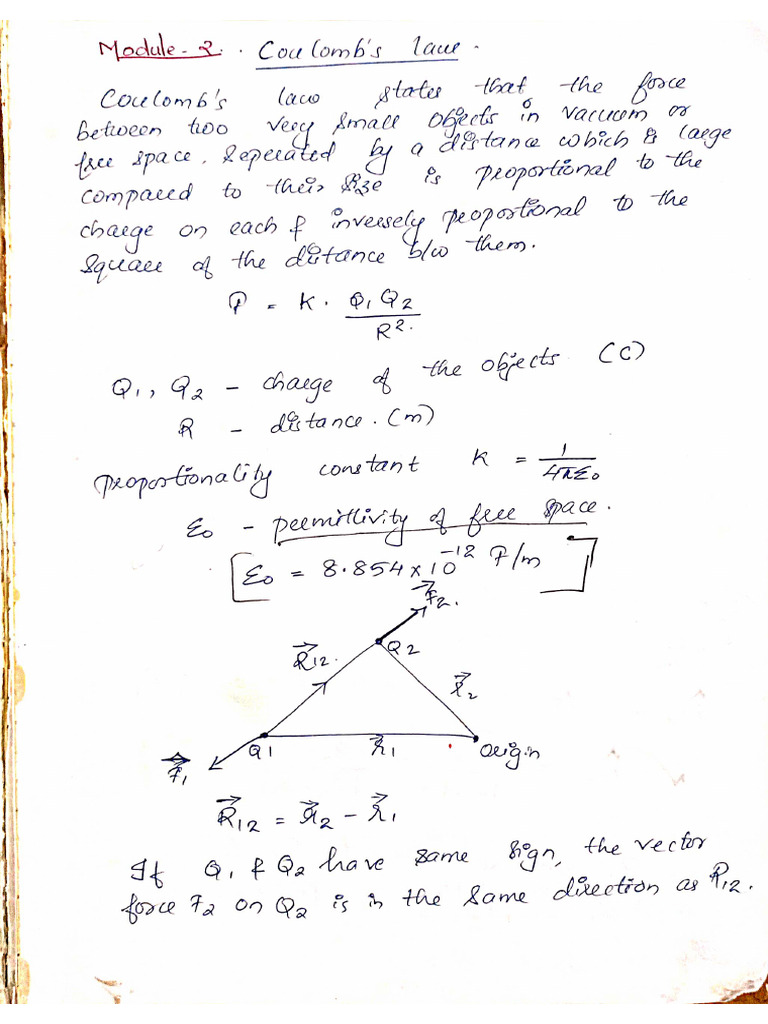 Module-2. Coulomb's law.
Coulomb's law states that the force
between two very small objects in vacuum or
free space, seperated by a distance which is large
compared to their size is proportional to the
charge on each & inversely proportional to the
square of the distance b/w them.
F = K. Q1 Q2 / R².
Q1, Q2 - charge of the objects (C)
R - distance. (m)
proportionality constant K = 1 / 4πε0
ε0 - permittivity of free space.
[ε0 = 8.854 × 10⁻¹² F/m]
F⃗2.
R⃗12. Q2
r⃗2
Q1 r⃗1 origin
F⃗1
R⃗12 = r⃗2 - r⃗1
If Q1 & Q2 have same sign, the vector
force F2 on Q2 is in the same direction as R12.